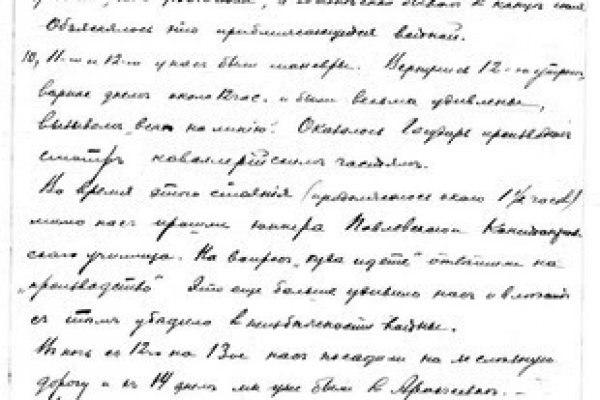 Объяснялось это приближающейся войной.
10, 11-го и 12-го у нас были маневры. Вернулись 12-го утром,
днем около 12 час. и были весьма удивлены,
вызовом "всех на линию". Оказалось Государь производил
смотр кавалерийским частям.
Во время этого стояния (продолжалось около 1½ часов)
мимо нас прошли юнкера Павловского
училища. На вопрос "куда идете" ответили на
"производство". Это еще больше удивило нас и
с тем убедило в неизбежности войны.
В ночь с 12го на 13ое нас посадили на железную
дорогу и в 14 днем мы уже были в